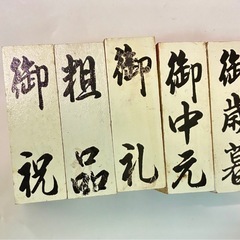 御祝
粗品
御礼
御中元
御歳暮